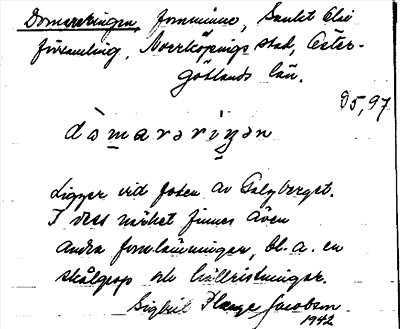 Domareringen, fornminne, Sankt Olai
församling, Norrköpings stad, Öster-
götlands län.
D5,97
dòmarəriŋən
Ligger vid foten av
I dess närhet finnes även
andra fornlämningar, bl. a. en
skålgrop och hällristningar.
Jacobson
1942